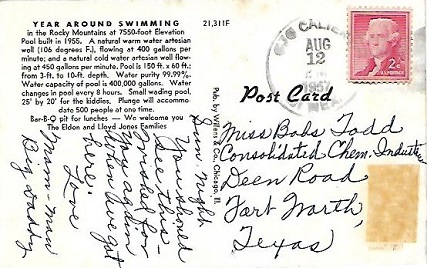 YEAR AROUND SWIMMING
in the Rocky Mountains at 7550-foot Elevation
Pool built in 1955. A natural warm water artesian
well (106 degrees F.), flowing at 400 gallons per
minute; and a natural cold water artesian well flow-
ing at 450 gallons per minute. Pool is 150 ft. x 60 ft.;
from 3-ft. to 10-ft. depth. Water purity 99.99%.
Water capacity of pool is 400,000 gallons. Water
changes in pool every 8 hours. Small wading pool,
25' by 20' for the kiddies. Plunge will accommo-
date 500 people at one time.
Bar-B-Q pit for lunches — We welcome you
The Eldon and Lloyd Jones Families
21,311F
Pub. by Wilens & Co., Chicago, Ill.
AUG
12
2¢
Post Card
Sun. night
You should
see this -
Wished for
you again
when we got
here.
Love
Mam-Maw
Big daddy
Miss Babs Todd
Consolidated Chem. Industries
Deen Road
Fort Worth,
Texas